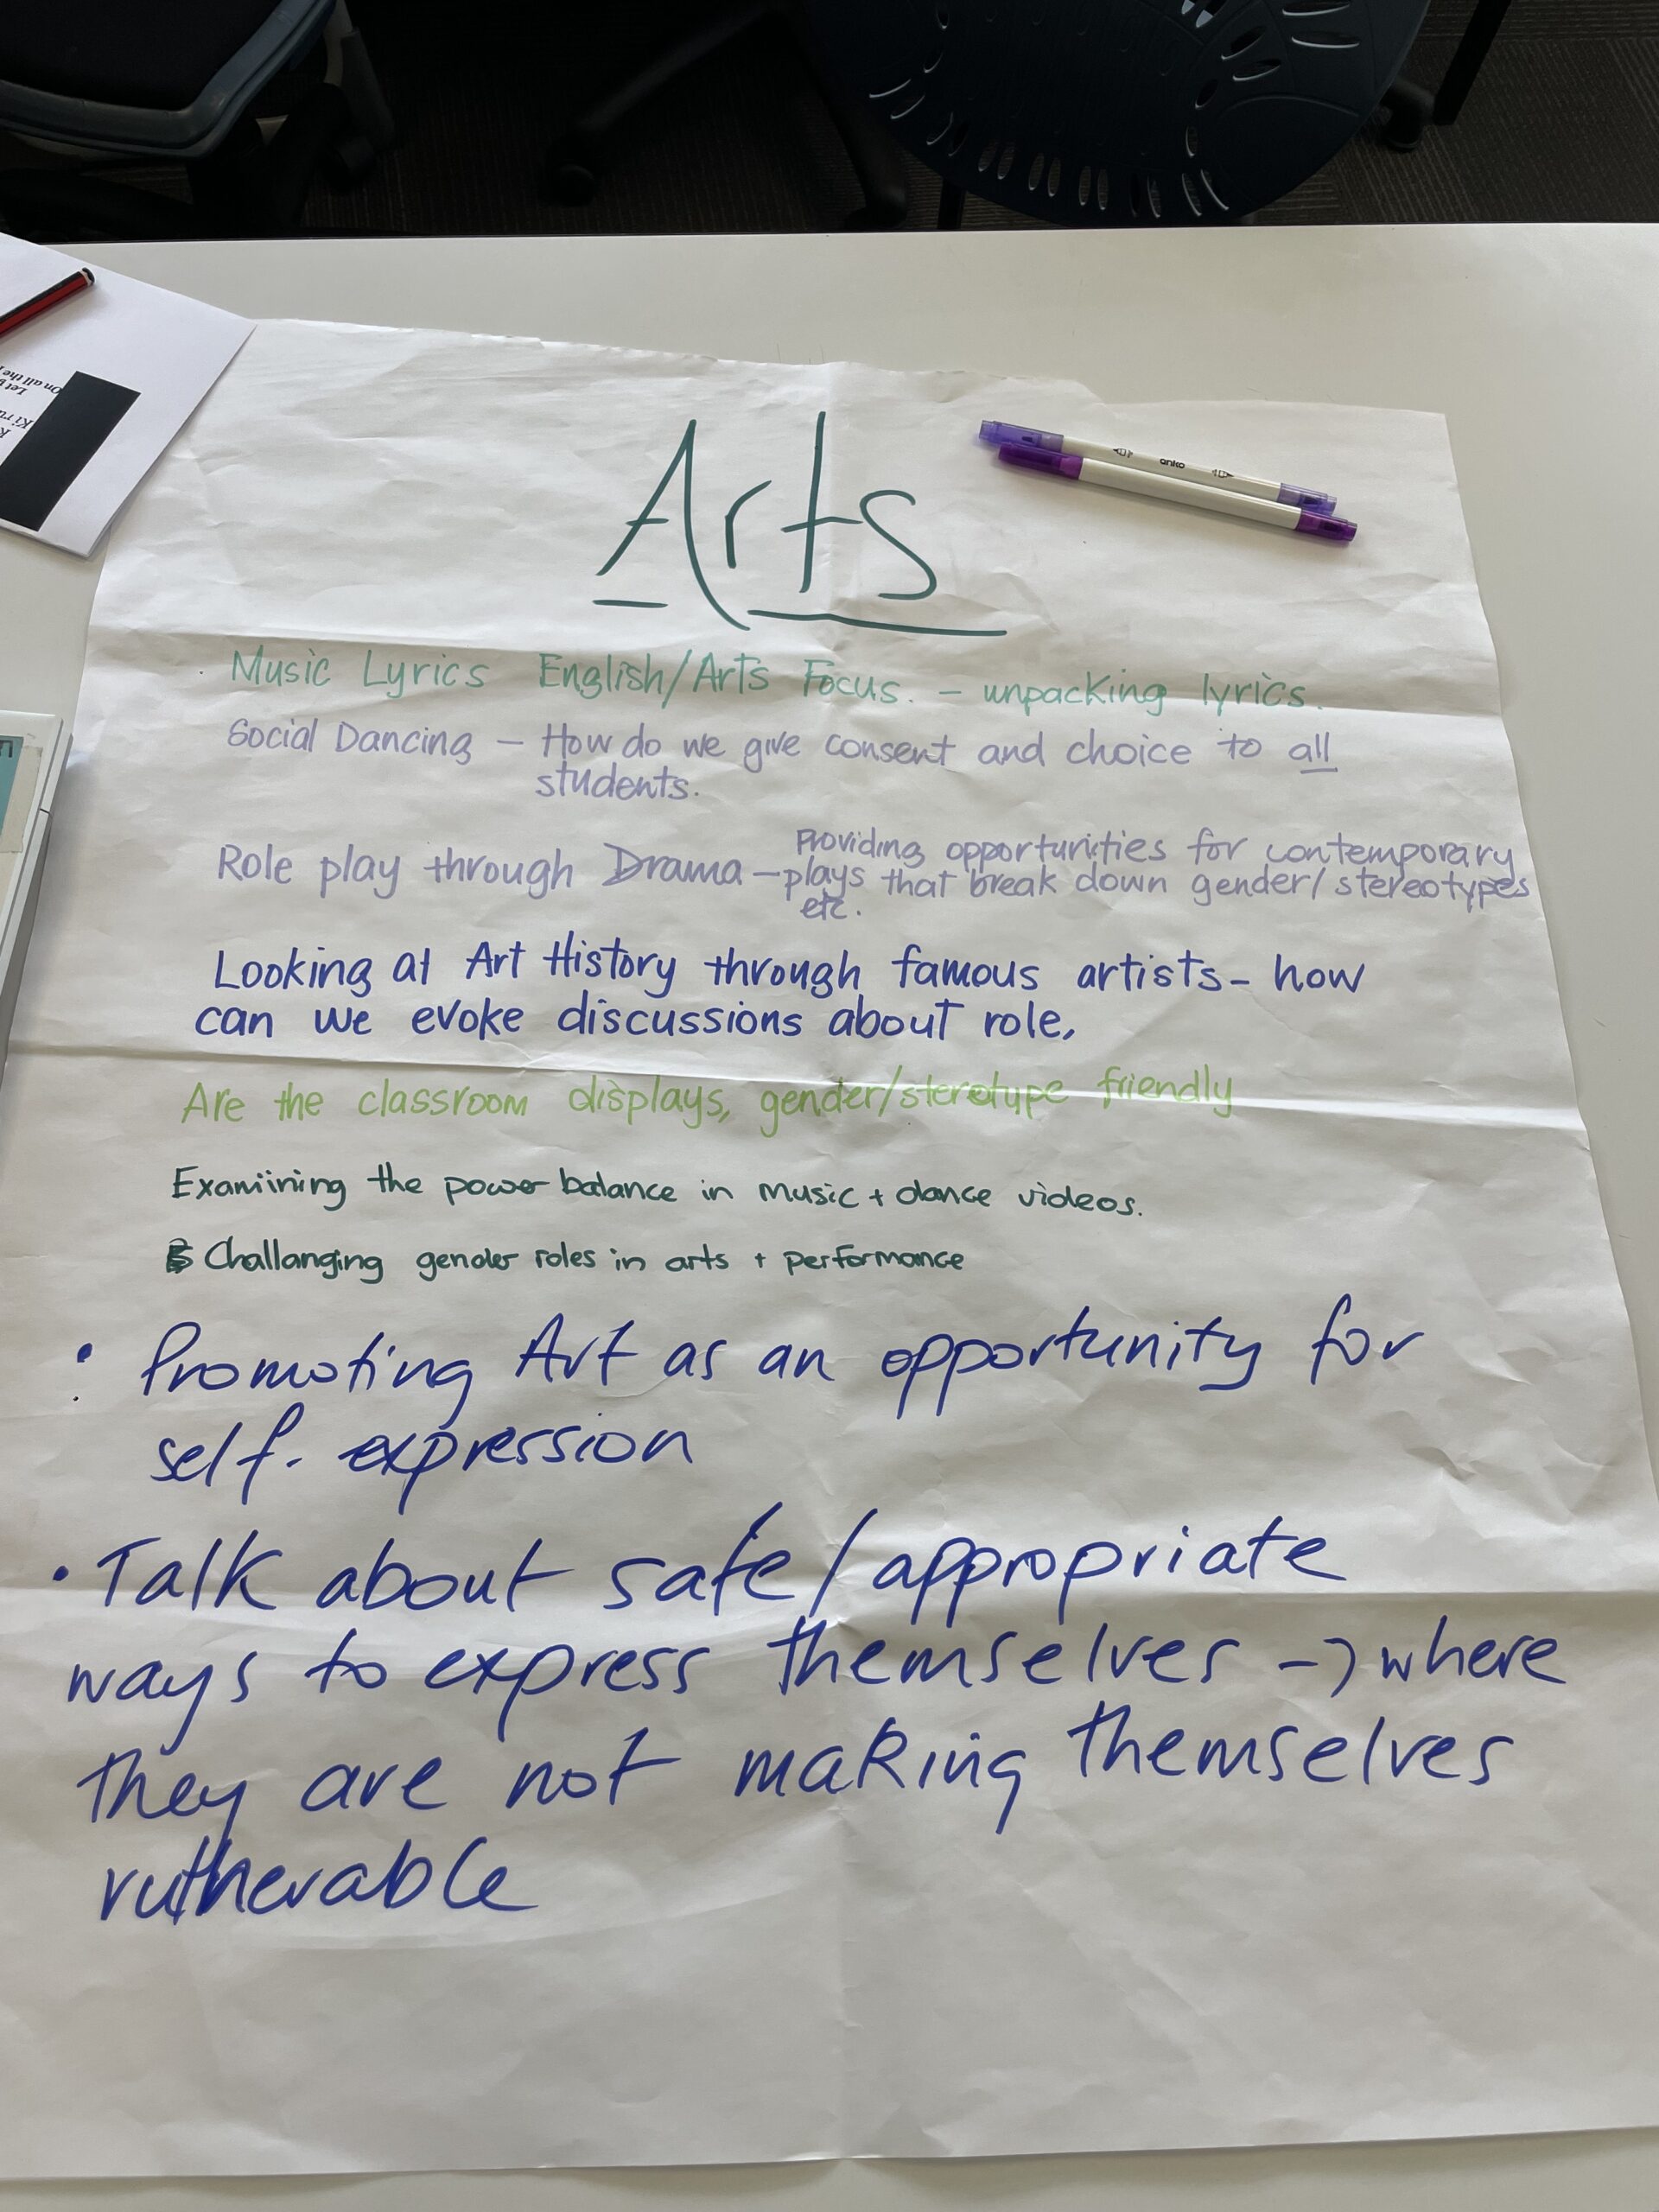 On all the
Let
Ki ru
K
anko
Arts
Music Lyrics English/Arts Focus. - unpacking lyrics.
Social Dancing - How do we give consent and choice to all
students.
Role play through Drama - Providing opportunities for contemporary
plays that break down gender/stereotypes
etc.
Looking at Art History through famous artists - how
can we evoke discussions about role,
Are the classroom displays, gender/sterotype friendly
Examiining the power balance in music + dance videos.
Challanging gender roles in arts + performance
• Promoting Art as an opportunity for
self. expression
• Talk about safe/appropriate
ways to express themselves -> where
they are not making themselves
vulnerable